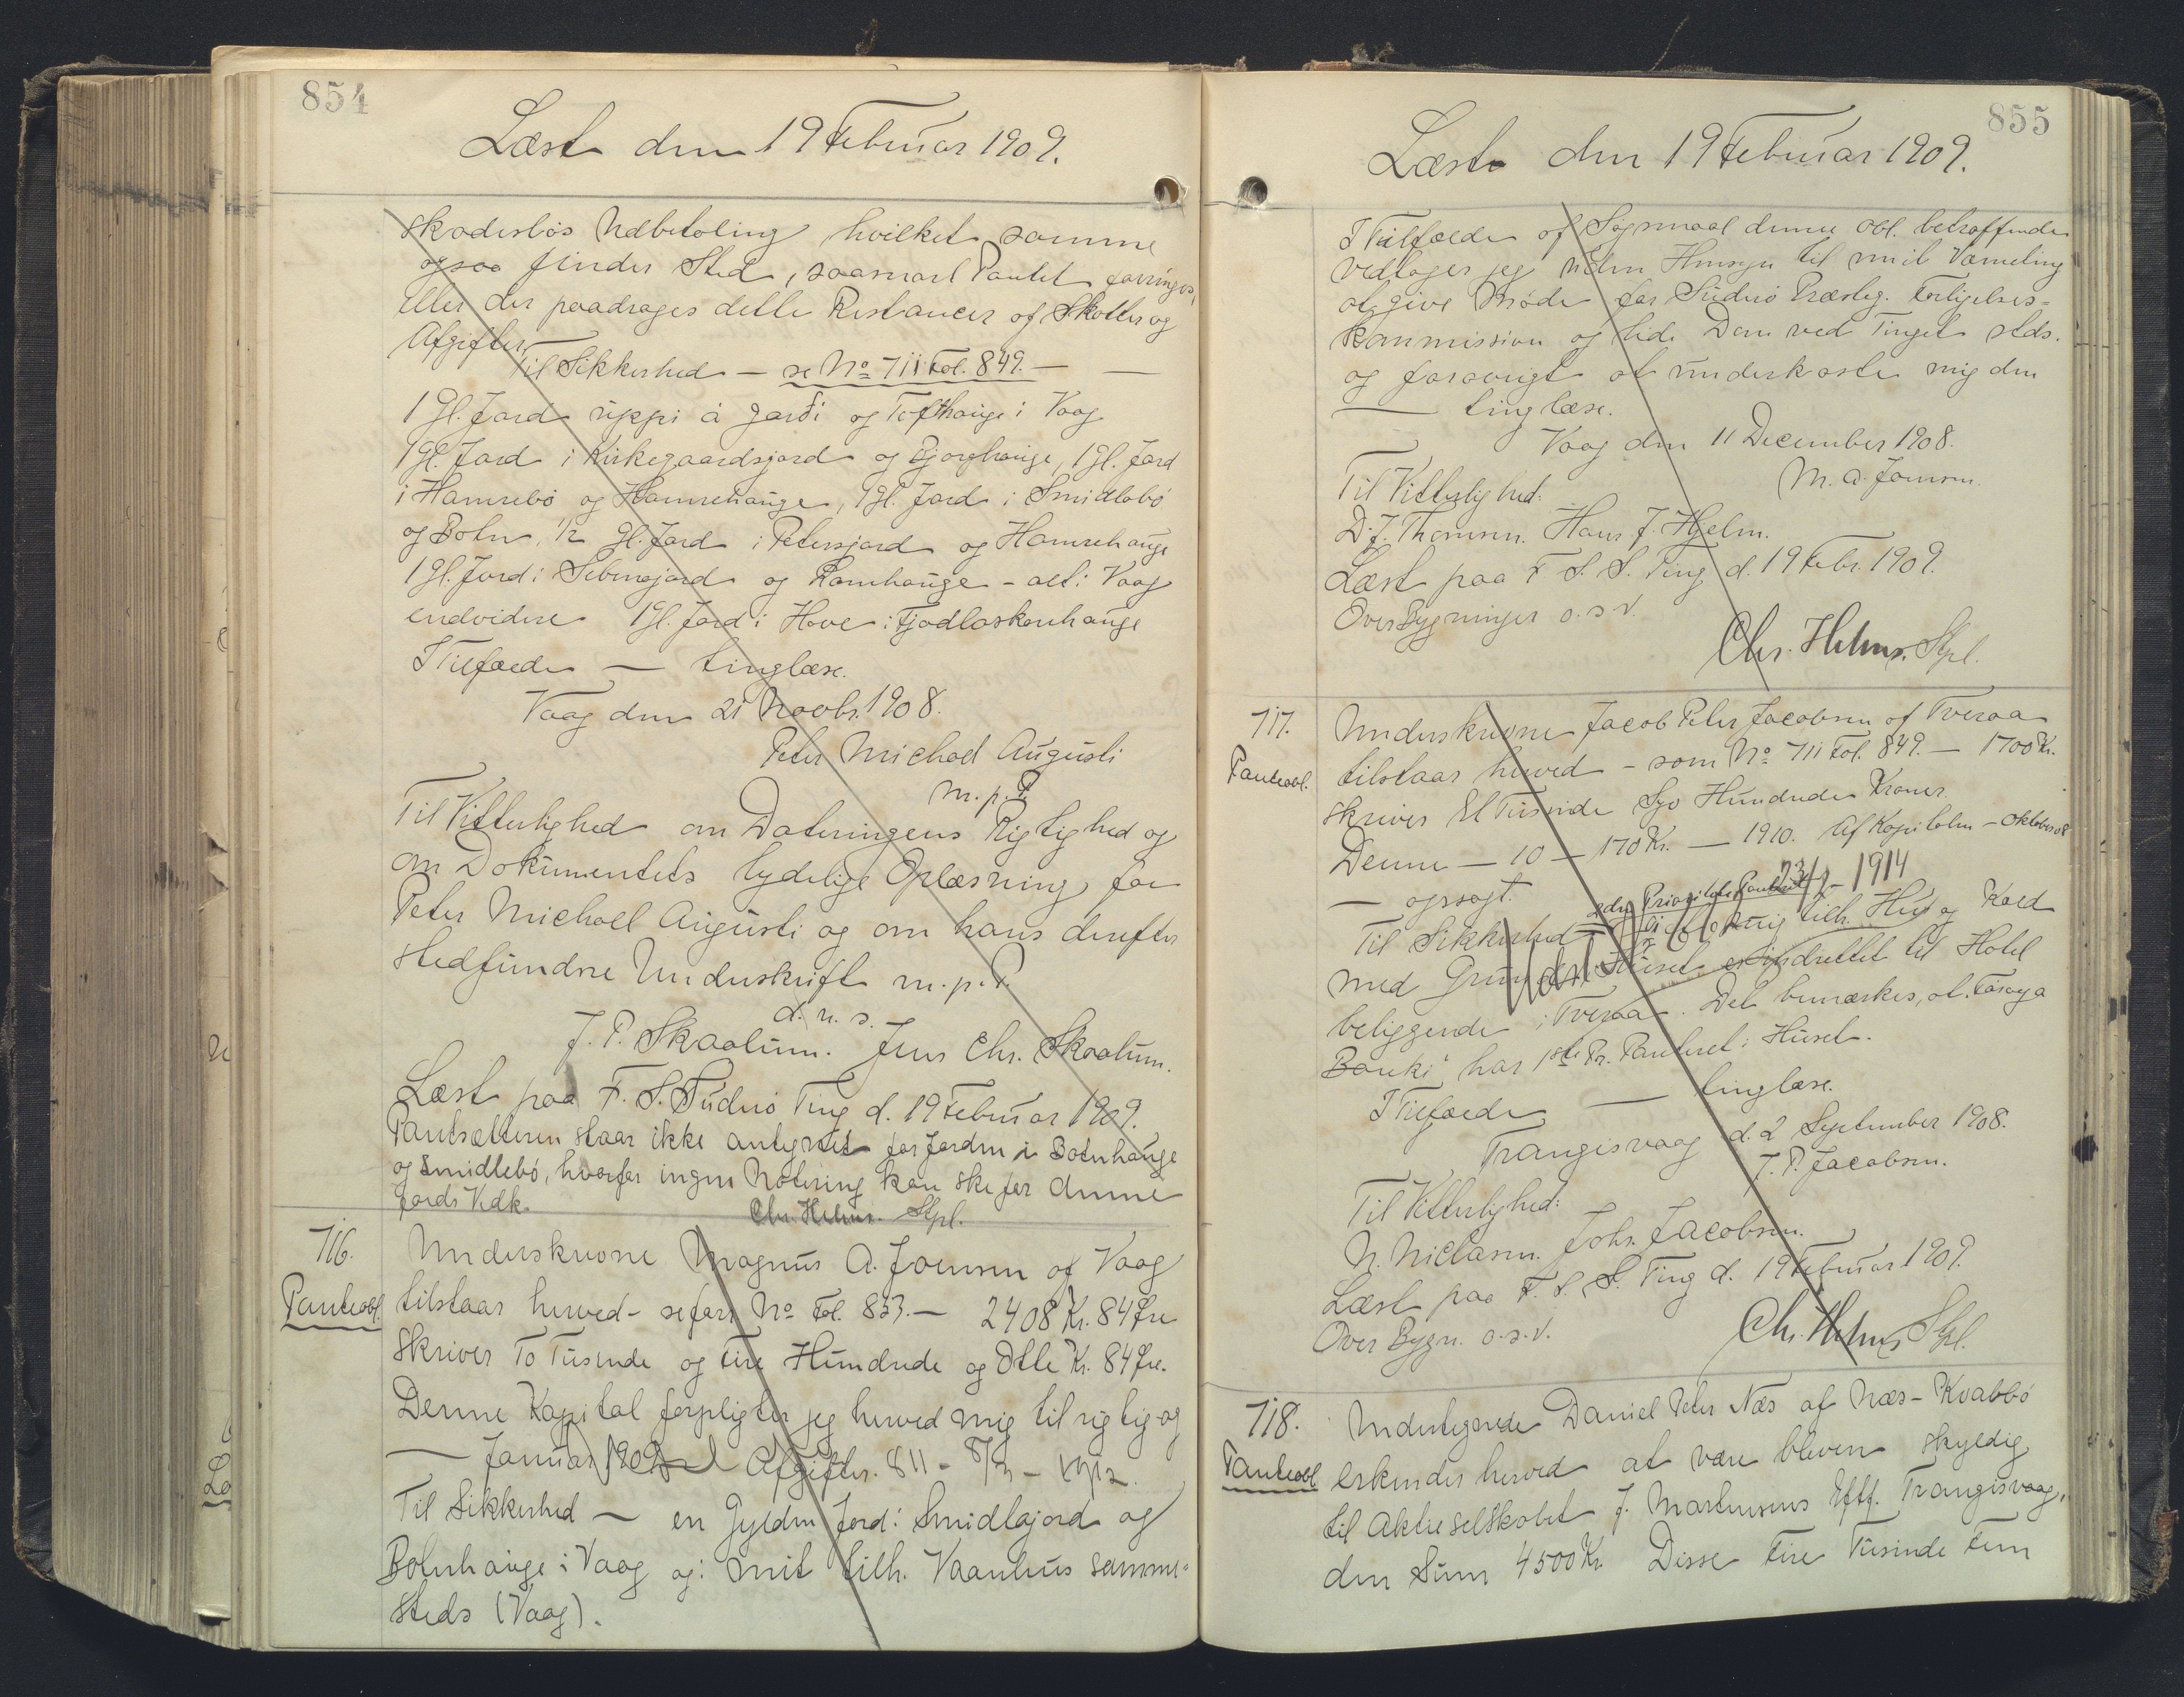 854
Læst den 19 Februar 1909.
skadesløs Udbetaling hvilket samme
ogsaa finder Sted, saasnart Pantet forringes,
eller der paadrages dette Restancer af Skatter og
Afgifter
Til Sikkerhed — se No 711 Fol. 849. —
1 Gl. Jord uppi á Jarði og Tofthauge i Vaag
1 Gl. Jord i Kirkegaardsjord og Bjorghauge, 1 Gl. Jord
i Hamrebø og Hamrehauge, 1 Gl. Jord i Smidlabø
og Botn, 1/2 Gl. Jord i Petersjord og Hamrehauge
1 Gl. Jord i Sebmajord og Kamhauge - alt i Vaag
endvidere 1 Gl. Jord i Hove i Fjodlaskorhauge
I Tilfælde — tinglæse.
Vaag den 21 Novbr. 1908.
Peter Michael Augusti
m. p. P.
Til Vitterlighed om Dateringens Rigtighed og
om Dokumentets tydelige Oplæsning for
Peter Michael Augusti og om hans derefter
stedfundne Underskrift m. p. P.
d. u. s.
J. P. Skaalum. Jens Chr. Skaalum.
Læst paa F. S. Suderø Ting d. 19 Februar 1909.
Pantsætteren staar ikke antegnet for Jorden i Botnhauge
og Smidlebø, hvorfor ingen Notering kan ske for denne
Jords Vedk. Chr. Helms. Stpl.
716.
Panteobl.
Underskrevne Magnus A. Joensen af Vaag
tilstaar herved - se forr. No Fol. 833. — 2408 Kr. 84 Øre
skriver To Tusinde og Fire Hundrede og Otte Kr. 84 Øre.
Denne Kapital forpligter jeg herved mig til rigtig og
— Januar 1909 Afgifter.
Til Sikkerhed — en Gylden Jord i Smidlajord og
Botnhauge i Vaag og i mit tilh. Vaanhus samme-
steds (Vaag).
855
Læst den 19 Februar 1909.
I Tilfælde af Søgsmaal denne Obl. betræffende
vedtager jeg uden Hensyn til mit Værneting
at give Møde for Suderø Præsteg. Forligelses-
kommission og lide Dom ved Tinget stds.
og forøvrigt at underkaste mig den
— tinglæse.
Vaag den 11 December 1908.
M. A. Joensen.
Til Vitterlighed:
D. J. Thomsen. Hans J. Hjelm.
Læst paa F. S. S. Ting d. 19 Febr. 1909.
Over Bygninger o. s. v.
Chr. Helms. Stpl.
717.
Panteobl.
Underskrevne Jacob Peter Jacobsen af Tveraa
tilstaar herved - som No 711 Fol. 849. — 1700 Kr.
skriver Et Tusinde Syv Hundrede Kroner.
Denne — 10 — 170 Kr. — 1910. Af Kapitalen - Oktober 08
— opsagt. 1914
Til Sikkerhed 2den Prioritets Panteret i det mig tilh. Hus og Kæld
med Grund. Huset er indrettet til Hotel
beliggende i Tveraa. Det bemærkes, at "Føroya
Banki" har 1ste Pr. Panteret i Huset.
I Tilfælde — tinglæse.
Trangisvaag d. 2 September 1908.
J. P. Jacobsen.
Til Vitterlighed:
N. Niclasen. Johs. Jacobsen.
Læst paa F. S. S. Ting d. 19 Februar 1909.
Over Bygn. o. s. v.
Chr. Helms Stpl.
718.
Panteobl.
Undertegnede Daniel Peter Næs af Næs - Kvabbø
erkender herved at være bleven skyldig
til Aktieselskabet J. Mortensens Eftf. Trangisvaag,
den Sum 4500 Kr. Disse Fire Tusinde Fem